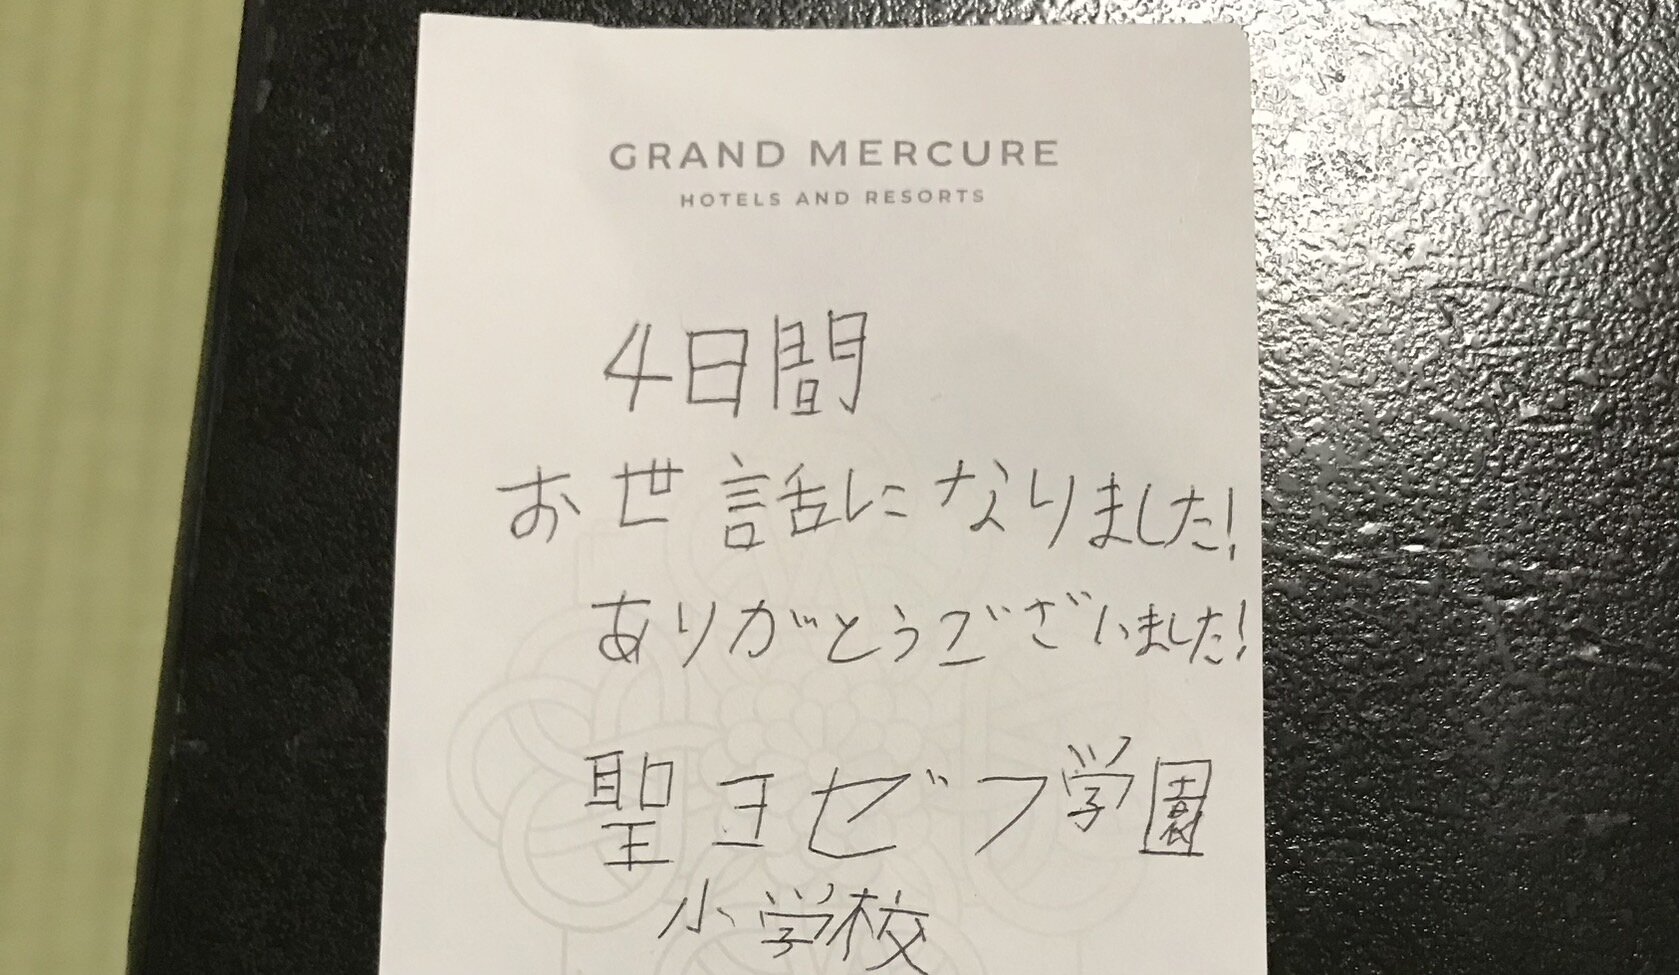 GRAND MERCURE
HOTELS AND RESORTS
4日間
お世話になりました!
ありがとうございました!
聖ヨゼフ学園
小学校